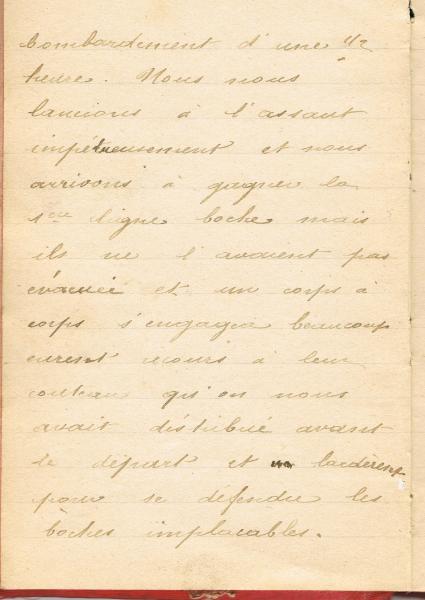 bombardement d'une 1/2
heure. Nous nous
lancions à l'assaut
impétueusement et nous
arrivons à gagner la
1ère ligne boche mais
ils ne l'avaient pas
évacuée et un corps à
corps s'engagea beaucoup
eurent recours à leur
couteau qu'on nous
avait distribué avant
le départ et lardèrent
pour se défendre les
boches implacables.